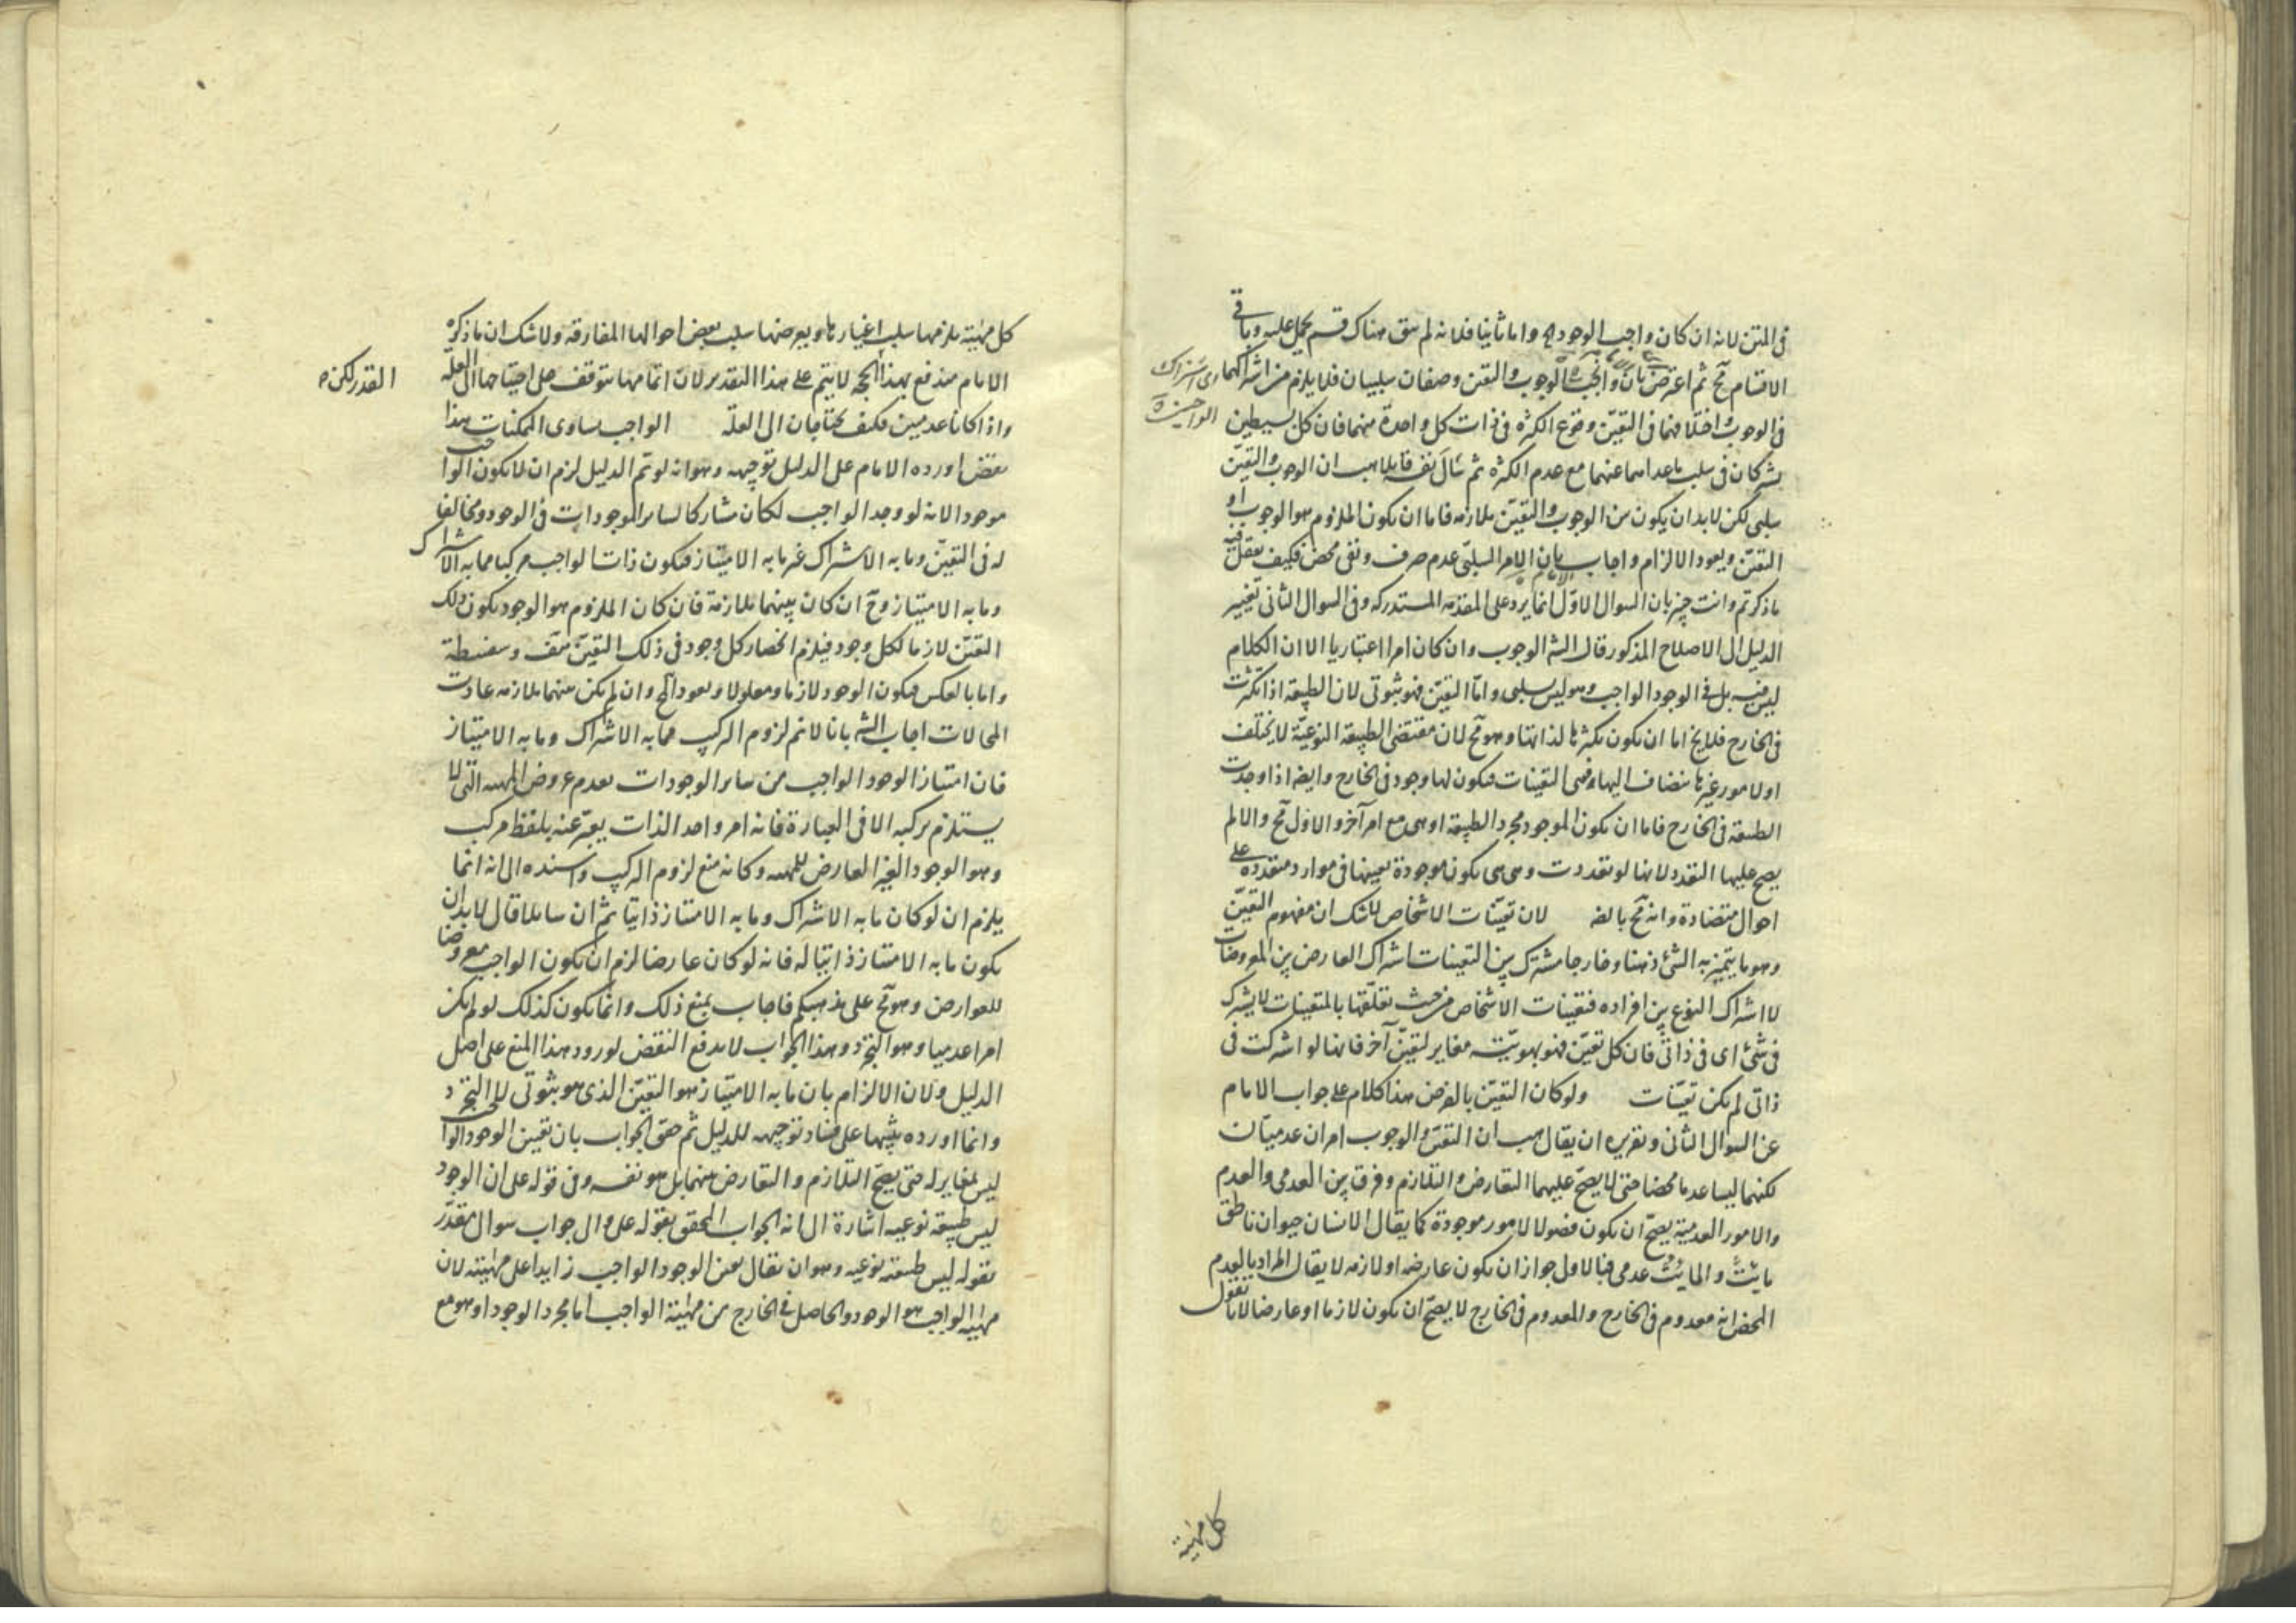 فى المتن لانه ان كان واجب الوجود اه واما ثانيا فلانه لم يبق هناك قسم يحمل عليه وباقى
الاقسام مح ثم اعترض بان الوجوب والتعين وصفان سلبيان فلا يلزم من اشتراكهما
اى اشتراك الواجبين
فى الوجوب واختلافهما فى التعين وقوع الكثرة فى ذات كل واحدة منهما فان كل بسيطين
يشتركان فى سلب ما عداهما عنهما مع عدم الكثرة ثم سال نفسه قايلا هب ان الوجوب والتعين
سلبى لكن لابد ان يكون بين الوجوب والتعين ملازمة فاما ان يكون الملزوم هو الوجوب او
التعين ويعود الالزام واجاب بان الامر السلبى عدم صرف ونفى محض فكيف يعقل فيه
ما ذكرتم وانت خبير بان السوال الاول انما يرد على المقدمة المستدركة وفى السوال الثانى تغيير
الدليل الى الاصلاح المذكور قال الشه الوجوب وان كان امرا اعتباريا الا ان الكلام
ليس فيه بل فى الوجود الواجب وهو ليس بسلبى واما التعين فهو ثبوتى لان الطبيعة اذا تكثرت
فى الخارج فلا يخ اما ان يكون تكثرها لذاتها وهو مح لان مقتضى الطبيعة النوعية لا يختلف
او لامور غيرها ينضاف اليها وهى التعينات فيكون لها وجود فى الخارج وايضا اذا وجدت
الطبيعة فى الخارج فاما ان يكون الموجود مجرد الطبيعة او هى مع امر آخر والاول مح والا لم
يصح عليها التعدد لانها لو تعددت وهى هى يكون موجودة بعينها فى موارد متعددة على
احوال متضادة وانه مح بالضـ لان تعينات الاشخاص لا شك ان مفهوم التعين
وهو ما يتميز به الشئ ذهنا وخارجا مشترك بين التعينات اشتراك العارض بين المعروضات
لا اشتراك النوع بين افراده فتعينات الاشخاص من حيث تعلقها بالمتعينات لا يشترك
فى شئ اى فى ذاتى فان كل تعين فهو بهويته مغاير لتعين آخر فانها لو اشتركت فى
ذاتى لم يكن تعينات ولو كان التعين بالفرض هذا كلام على جواب الامام
عن السوال الثانى وتقريره ان يقال هب ان التعين والوجوب امران عدميان
لكنهما ليسا عدما محضا حتى لا يصح عليهما التعارض والتلازم وفرق بين العدمى والعدم
والامور العدمية يصح ان يكون فصولا لامور موجودة كما يقال الانسان حيوان ناطق
مايت والمايت عدمى فبالاولى جواز ان يكون عارضه او لازمه لا يقال المراد بالعدم
المحض انه معدوم فى الخارج والمعدوم فى الخارج لا يصح ان يكون لازما او عارضا لانا نقول
كل مهية
كل مهية يلزمها سلب اغيارها ويعرضها سلب بعض احوالها المفارقة ولا شك ان ما ذكره
الامام مندفع بهذا القدر لكن الحجة لا يتم على هذا التقدير لان اتمامها يتوقف على احتياجهما الى العلة
واذا كانا عدميين فكيف يحتاجان الى العلة الواجب يساوى الممكنات هذا
نقض اورده الامام على الدليل توجيهه وهو انه لو تم الدليل لزم ان لا يكون الواجب
موجودا لانه لو وجد الواجب لكان مشاركا لساير الموجودات فى الوجود ومخالفا
له فى التعين وما به الاشتراك غير ما به الامتياز فيكون ذات الواجب مركبا مما به الاشتراك
وما به الامتياز وح ان كان بينهما ملازمة فان كان الملزوم هو الوجود يكون ذلك
التعين لازما لكل وجود فيلزم انحصار كل وجود فى ذلك التعين هف وسفسطة
واما بالعكس فيكون الوجود لازما ومعلولا ويعود المح وان لم يكن بينهما ملازمه عادت
المحالات اجاب الشه بانا لا نم لزوم التركيب مما به الاشتراك وما به الامتياز
فان امتياز الوجود الواجب من ساير الوجودات بعدم عروض المهية التى لا
يستلزم تركبه الا فى العبارة فانه امر واحد الذات يعبر عنه بلفظ مركب
وهو الوجود الغير العارض للمهية وكانه منع لزوم التركيب واسنده الى انه انما
يلزم ان لو كان ما به الاشتراك وما به الامتياز ذاتيا ثم ان سايلا قال لابد ان
يكون ما به الامتياز ذاتيا له فانه لو كان عارضا لزم ان يكون الواجب معروضا
للعوارض وهو مح على مذهبكم فاجاب بمنع ذلك وانما يكون كذلك لو لم يكن
امرا عدميا وهو التجرد وهذا الجواب لا يدفع النقض لورود هذا المنع على اصل
الدليل ولان الالزام بان ما به الامتياز هو التعين الذى هو ثبوتى لا التجرد
وانما اورده تنبيها على فساد توجيهه للدليل ثم حقق الجواب بان تعين الوجود الواجب
ليس بمغاير له حتى يصح التلازم والتعارض بينهما بل هو نفسه وفى قوله على ان الوجود
ليس طبيعة نوعيه اشارة الى انه الجواب المحقق بقوله على وال جواب سوال مقدر
بقوله ليس طبيعة نوعيه وهو ان يقال تعين الوجود الواجب زايد على مهيته لان
مهية الواجب هو الوجود والحاصل فى الخارج من مهية الواجب اما مجرد الوجود او هو مع